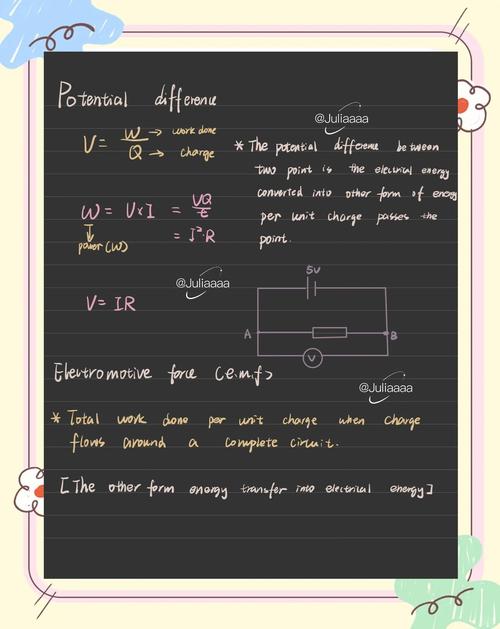 Potential difference
@Juliaaaa
V = W/Q → work done
→ charge
* The potential difference between
two point is the electrical energy
converted into other form of energy
per unit charge passes the
point.
W = V×I = VQ/t
= I²·R
power (W)
@Juliaaaa
V = IR
5V
A
B
V
Electromotive force (e.m.f)
@Juliaaaa
* Total work done per unit charge when charge
flows around a complete circuit.
[The other form energy transfer into electrical energy]